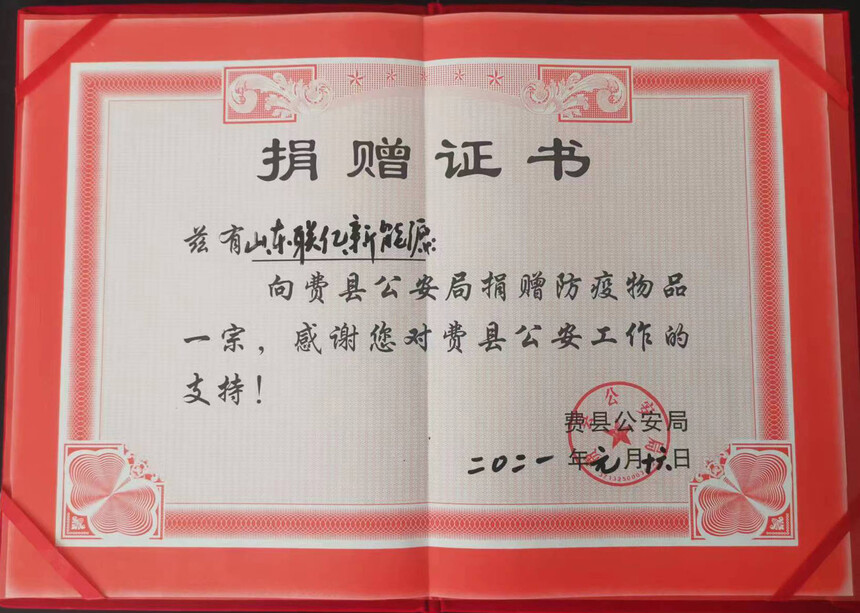 捐赠证书
兹有山东联亿新能源:
向费县公安局捐赠防疫物品
一宗，感谢您对费县公安工作的
支持！
费县公安局
二〇二一年元月十六日